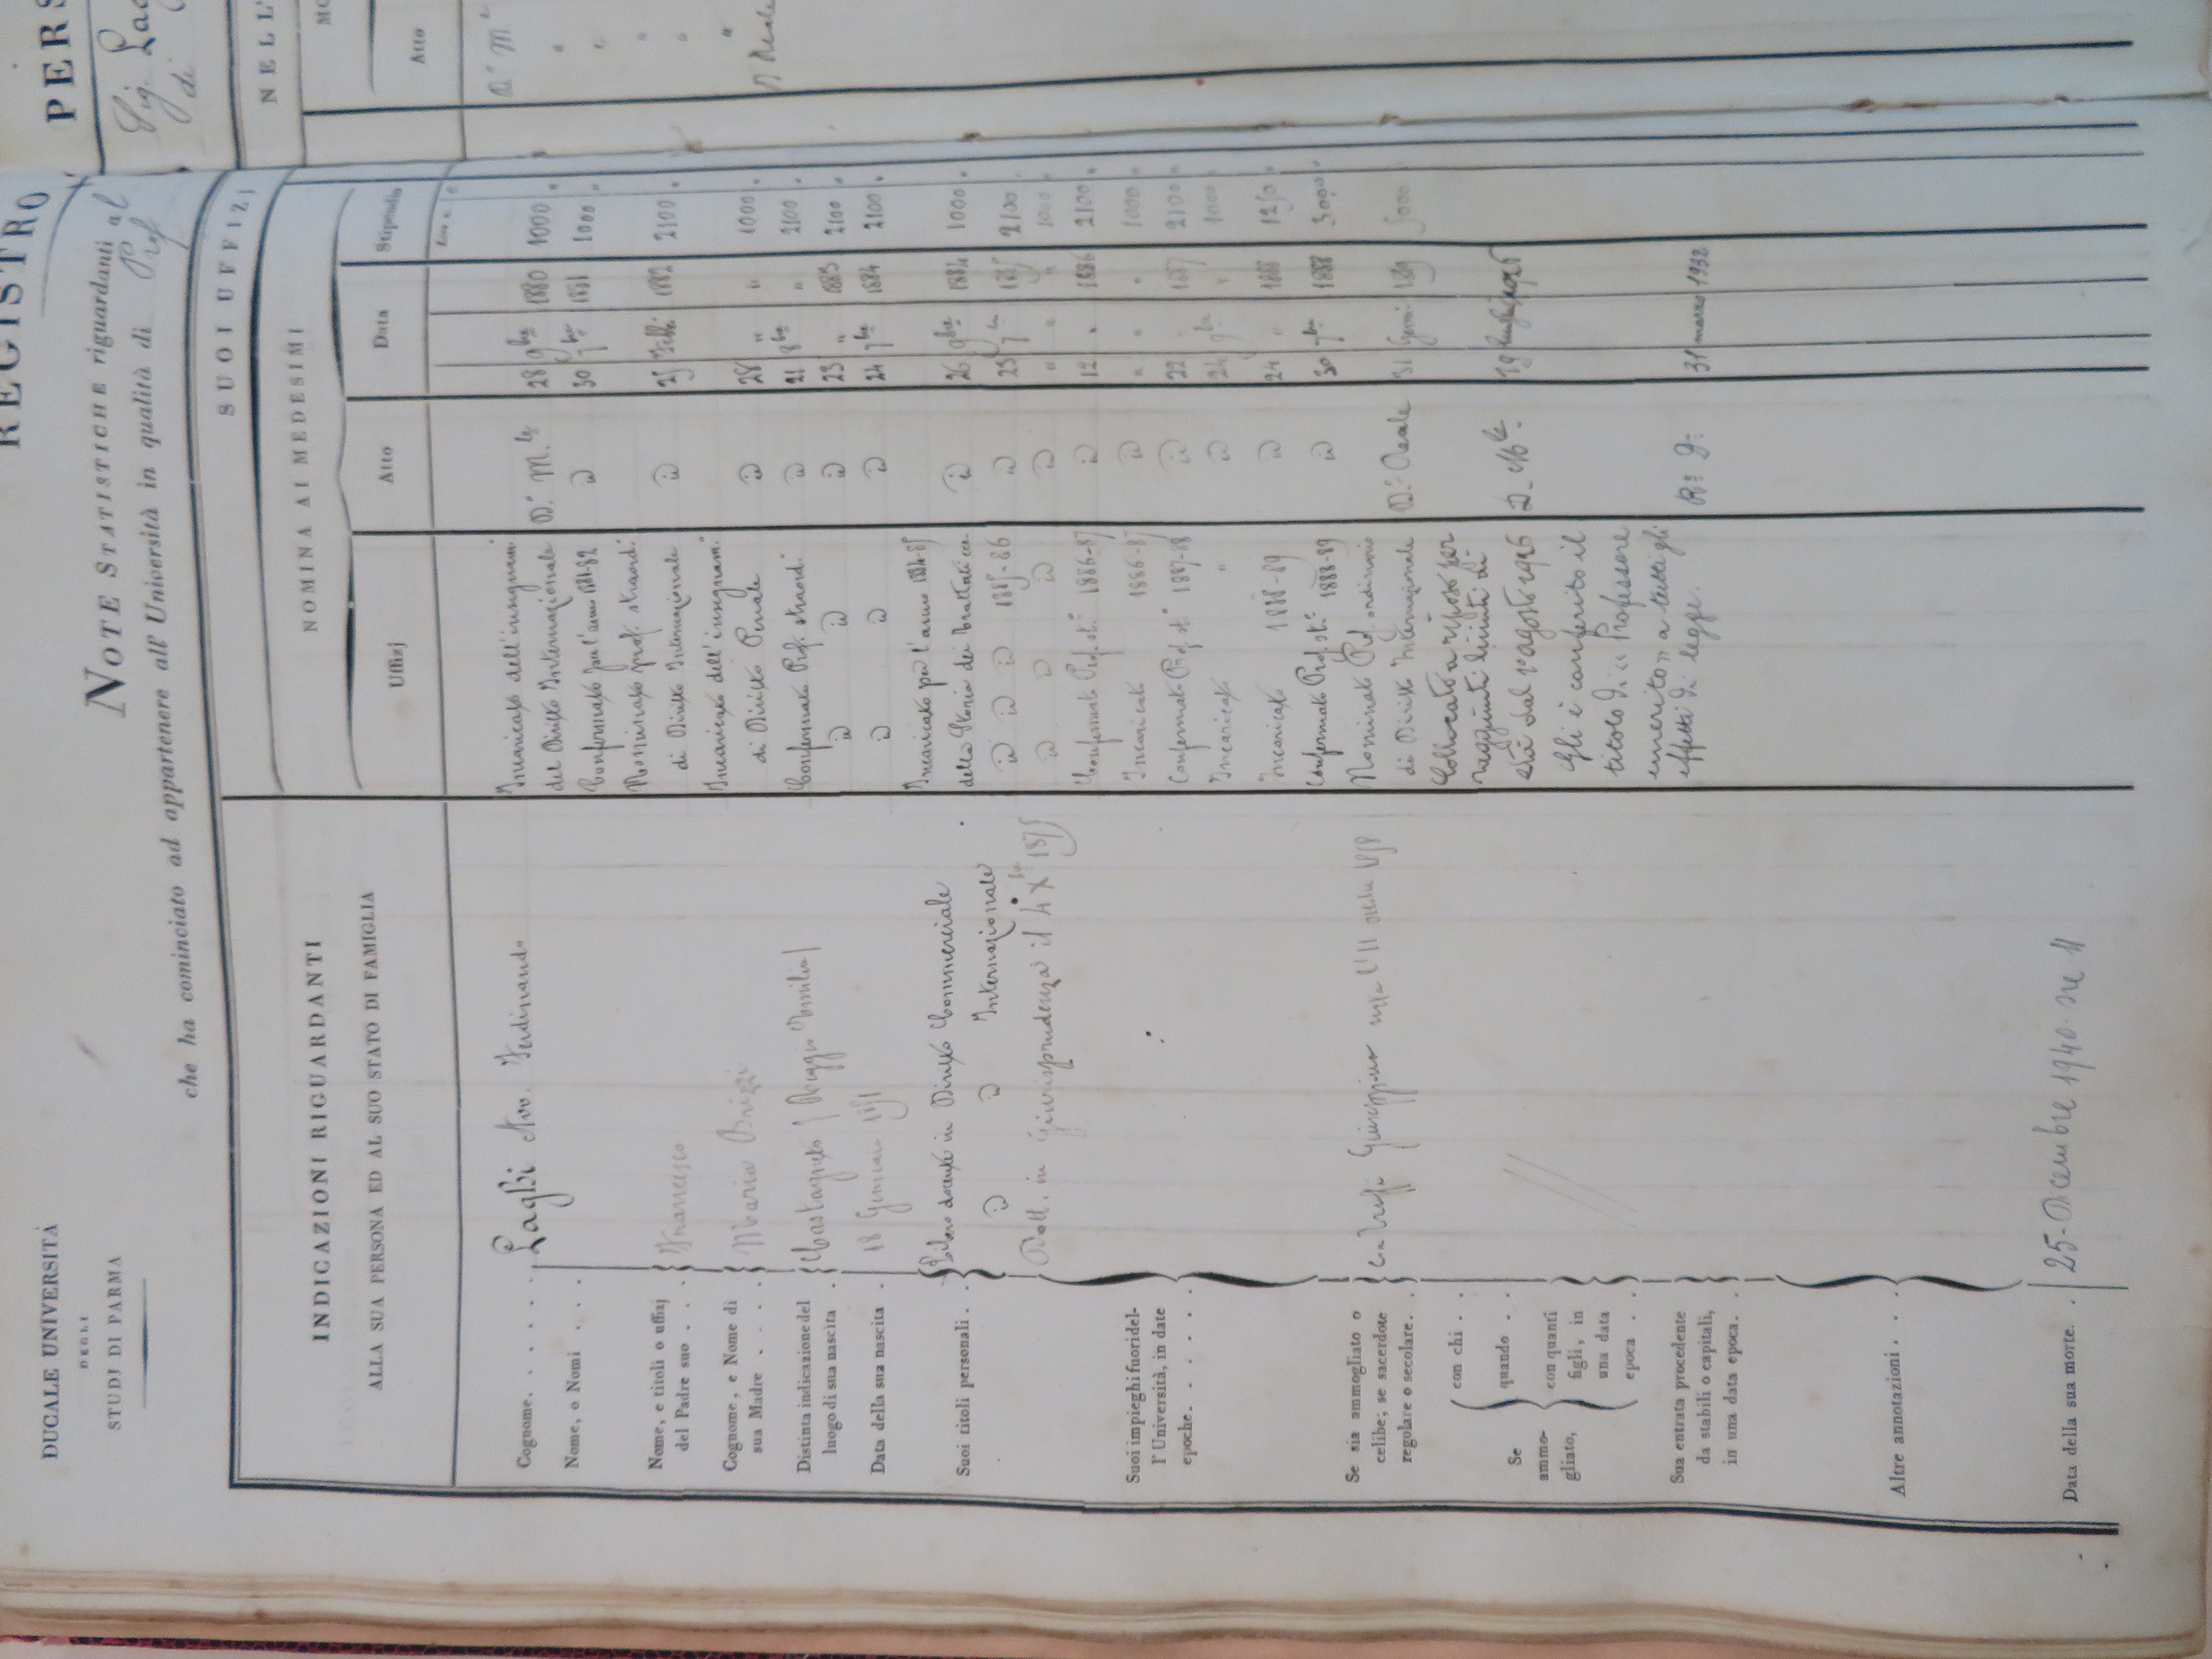 REGISTRO
PERS
NOTE STATISTICHE riguardanti al
Sig. Lag
che ha cominciato ad appartenere all'Università in qualità di Prof
di
DUCALE UNIVERSITÀ
DEGLI
STUDI DI PARMA
INDICAZIONI RIGUARDANTI
ALLA SUA PERSONA ED AL SUO STATO DI FAMIGLIA
Cognome. . . . . . Laghi Avv. Ferdinando
Nome, o Nomi . . .
Nome, e titoli o uffizj
del Padre suo . . . Francesco
Cognome, e Nome di
sua Madre . . . . Maria Brizzi
Distinta indicazione del
luogo di sua nascita . (Reggio Emilia)
Data della sua nascita . 18 Gennaio 1851
Suoi titoli personali. . Libero docente in Diritto Commerciale
id id Internazionale
Dott. in Giurisprudenza il 4 Xbre 1875
Suoi impieghi fuori del-
l'Università, in date
epoche. . . . . . .
Se sia ammogliato o
celibe; se sacerdote
regolare o secolare. . Giuseppina l'11
Se
ammo-
gliato,
con chi . .
quando . .
con quanti
figli, in
una data
epoca . .
Sua entrata procedente
da stabili o capitali,
in una data epoca. .
Altre annotazioni . . .
Data della sua morte. . 25-Dicembre 1940
SUOI UFFIZI
NOMINA AI MEDESIMI
NELL'
Uffizj
Atto
Data
Stipendio
Atto
Incaricato dell'insegnam.
del Diritto Internazionale D.o M.le 28 9bre 1880 1000 "
Confermato per l'anno 1881-82 id 30 7bre 1881 1000 "
Nominato prof. straord.
di Diritto Internazionale id 25 Febb. 1882 2100 "
Incaricato dell'insegnam.
di Diritto Penale id 28 " " 1000 "
Confermato Prof. straord. id 21 8bre " 2100 "
id id id 23 " 1883 2100 "
id id id 24 7bre 1884 2100 "
Incaricato per l'anno 1884-85
della Storia dei Trattati ecc. id 26 9bre 1884 1000 "
id id id 1885-86 id 23 7bre 1885 2100 "
id id id id " " " 1000 "
Confermato Prof. st.o 1886-87 id 12 " 1886 2100 "
Incaricato 1886-87 id " " " 1000 "
Confermato Prof. st.o 1887-88 id 22 " 1887 2100 "
Incaricato " id 24 9bre " 1000 "
Incaricato 1888-89 id 24 " 1888 1250 "
Confermato Prof. st.o 1888-89 id 30 7bre 1888 3000 "
Nominato Prof. ordinario
di Diritto Internazionale D.o Reale 31 Genn. 1889 5000
Collocato a riposo per
raggiunti limiti di
età dal 1° agosto 1926 D. M.le 19 luglio 1926
Gli è conferito il
titolo di "Professore
emerito" a tutti gli
effetti di legge. R. D. 31 marzo 1932
D.o M.e
"
"
"
"
"
D Reale